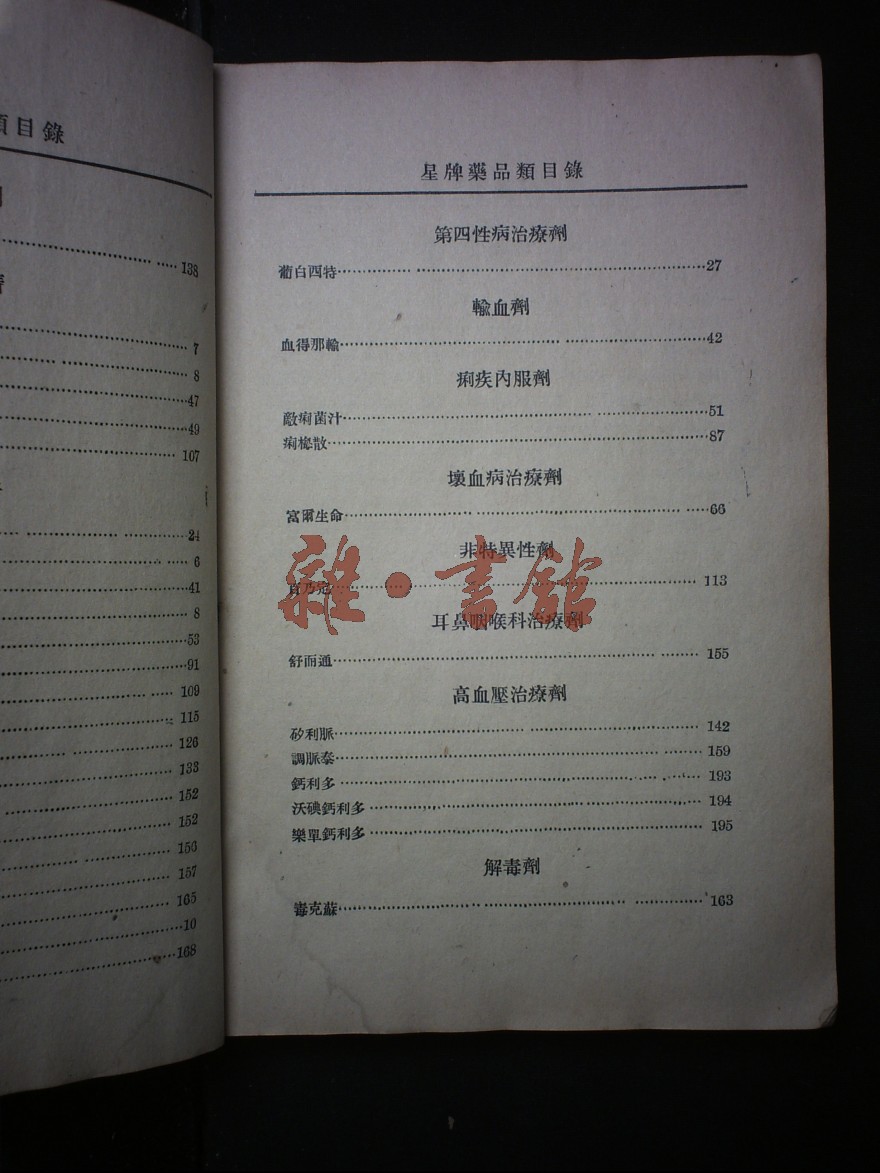 類目錄
138
7
8
47
49
107
24
6
41
8
53
91
109
115
126
133
152
152
156
157
165
10
168
星牌藥品類目錄
第四性病治療劑
葡白西特 27
輸血劑
血得那輸 42
痢疾內服劑
敵痢菌汁 51
痢梭散 87
壞血病治療劑
富爾生命 66
非特異性劑
乃冠 113
耳鼻咽喉科治療劑
舒而通 155
高血壓治療劑
矽利脈 142
調脈泰 159
鈣利多 193
沃碘鈣利多 194
樂單鈣利多 195
解毒劑
毒克蘇 163
雜·書館